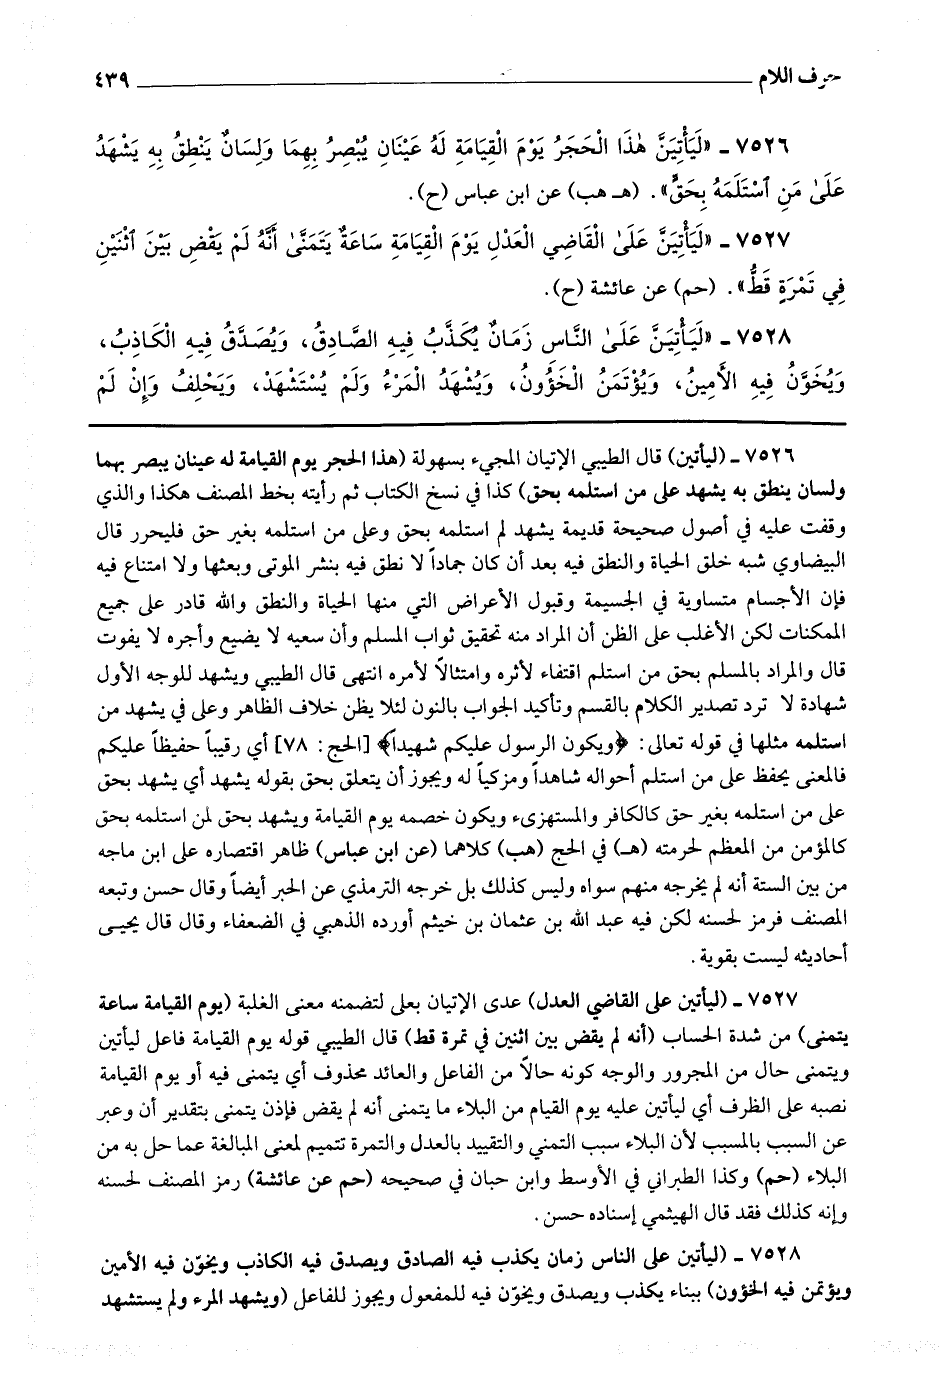 حرف اللام ٤٣٩
٧٥٢٦ ـ «لَيَأْتِيَنَّ هٰذَا الْحَجَرُ يَوْمَ الْقِيَامَةِ لَهُ عَيْنَانِ يُبْصِرُ بِهِمَا وَلِسَانٌ يَنْطِقُ بِهِ يَشْهَدُ
عَلَىٰ مَنِ ٱسْتَلَمَهُ بِحَقٍّ». (هـ هب) عن ابن عباس (ح).
٧٥٢٧ ـ «لَيَأْتِيَنَّ عَلَىٰ الْقَاضِي الْعَدْلِ يَوْمَ الْقِيَامَةِ سَاعَةٌ يَتَمَنَّىٰ أَنَّهُ لَمْ يَقْضِ بَيْنَ ٱثْنَيْنِ
فِي تَمْرَةٍ قَطُّ». (حم) عن عائشة (ح).
٧٥٢٨ ـ «لَيَأْتِيَنَّ عَلَىٰ النَّاسِ زَمَانٌ يُكَذَّبُ فِيهِ الصَّادِقُ، وَيُصَدَّقُ فِيهِ الْكَاذِبُ،
وَيُخَوَّنُ فِيهِ الأَمِينُ، وَيُؤْتَمَنُ الْخَؤُونُ، وَيَشْهَدُ الْمَرْءُ وَلَمْ يُسْتَشْهَدْ، وَيَحْلِفُ وَإِنْ لَمْ
٧٥٢٦ ـ (ليأتين) قال الطيبي الإتيان المجيء بسهولة (هذا الحجر يوم القيامة له عينان يبصر بهما
ولسان ينطق به يشهد على من استلمه بحق) كذا في نسخ الكتاب ثم رأيته بخط المصنف هكذا والذي
وقفت عليه في أصول صحيحة قديمة يشهد لم استلمه بحق وعلى من استلمه بغير حق فليحرر قال
البيضاوي شبه خلق الحياة والنطق فيه بعد أن كان جماداً لا نطق فيه بنشر الموتى وبعثها ولا امتناع فيه
فإن الأجسام متساوية في الجسيمة وقبول الأعراض التي منها الحياة والنطق والله قادر على جميع
الممكنات لكن الأغلب على الظن أن المراد منه تحقيق ثواب المسلم وأن سعيه لا يضيع وأجره لا يفوت
قال والمراد بالمسلم بحق من استلم اقتفاء لأثره وامتثالاً لأمره انتهى قال الطيبي ويشهد للوجه الأول
شهادة لا ترد تصدير الكلام بالقسم وتأكيد الجواب بالنون لئلا يظن خلاف الظاهر وعلى في يشهد من
استلمه مثلها في قوله تعالى: ﴿ويكون الرسول عليكم شهيداً﴾ [الحج: ٧٨] أي رقيباً حفيظاً عليكم
فالمعنى يحفظ على من استلم أحواله شاهداً ومزكياً له ويجوز أن يتعلق بحق بقوله يشهد أي يشهد بحق
على من استلمه بغير حق كالكافر والمستهزىء ويكون خصمه يوم القيامة ويشهد بحق لمن استلمه بحق
كالمؤمن من المعظم لحرمته (هـ) في الحج (هب) كلاهما (عن ابن عباس) ظاهر اقتصاره على ابن ماجه
من بين الستة أنه لم يخرجه منهم سواه وليس كذلك بل خرجه الترمذي عن الحبر أيضاً وقال حسن وتبعه
المصنف فرمز لحسنه لكن فيه عبد الله بن عثمان بن خيثم أورده الذهبي في الضعفاء وقال قال يحيى
أحاديثه ليست بقوية.
٧٥٢٧ ـ (ليأتين على القاضي العدل) عدى الإتيان بعلى لتضمنه معنى الغلبة (يوم القيامة ساعة
يتمنى) من شدة الحساب (أنه لم يقض بين اثنين في تمرة قط) قال الطيبي قوله يوم القيامة فاعل ليأتين
ويتمنى حال من المجرور والوجه كونه حالاً من الفاعل والعائد محذوف أي يتمنى فيه أو يوم القيامة
نصبه على الظرف أي ليأتين عليه يوم القيام من البلاء ما يتمنى أنه لم يقض فإذن يتمنى بتقدير أن وعبر
عن السبب بالمسبب لأن البلاء سبب التمني والتقييد بالعدل والتمرة تتميم لمعنى المبالغة عما حل به من
البلاء (حم) وكذا الطبراني في الأوسط وابن حبان في صحيحه (حم عن عائشة) رمز المصنف لحسنه
وإنه كذلك فقد قال الهيثمي إسناده حسن.
٧٥٢٨ ـ (ليأتين على الناس زمان يكذب فيه الصادق ويصدق فيه الكاذب ويخوّن فيه الأمين
ويؤتمن فيه الخؤون) ببناء يكذب ويصدق ويخوّن فيه للمفعول ويجوز للفاعل (ويشهد المرء ولم يستشهد